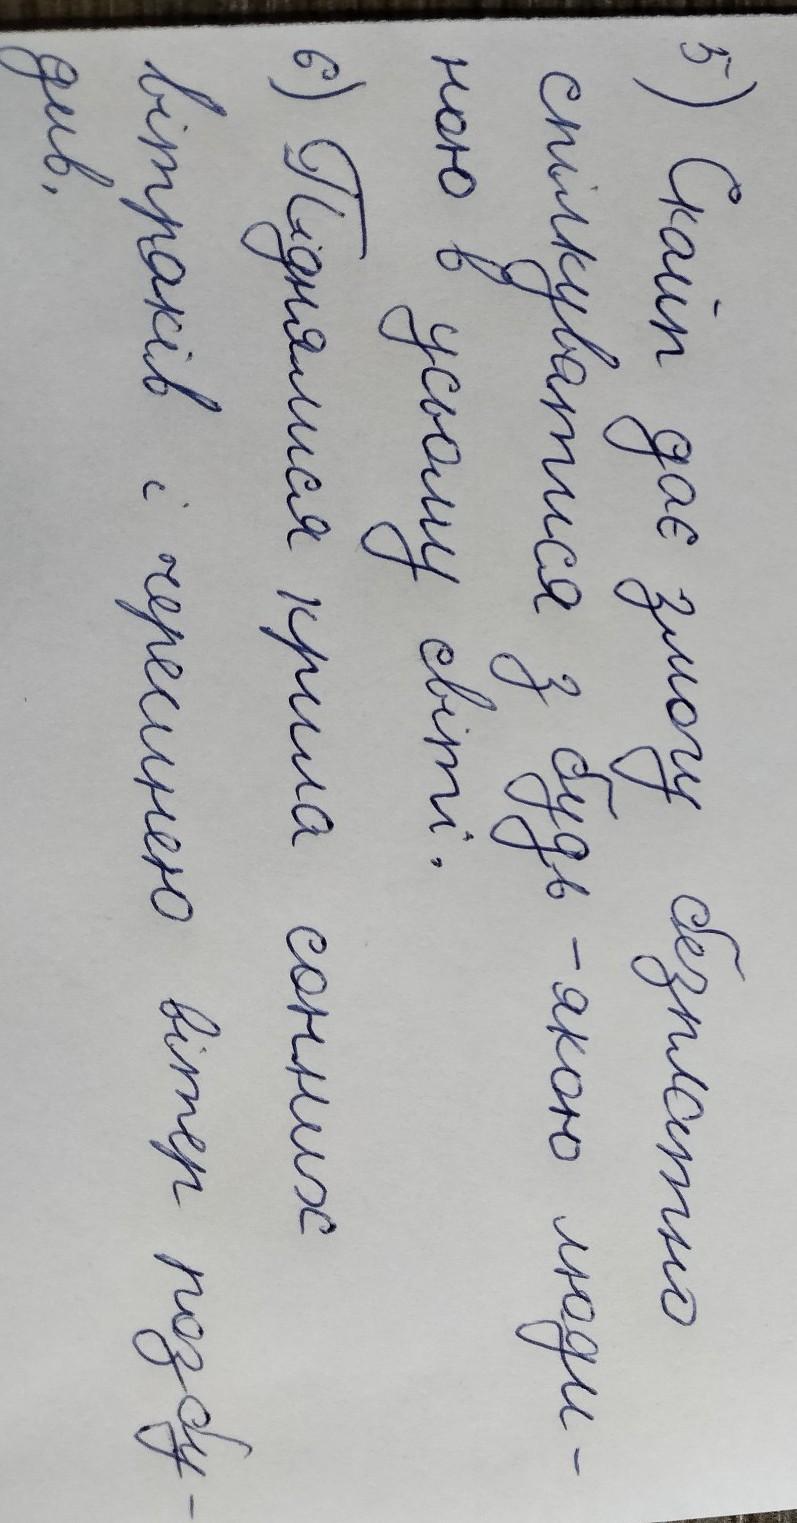 5) Скайп дає змогу безплатно
спілкуватися з будь-якою люди-
ною в усьому світі.
6) Піднялися крила сонних
вітраків і черешнею вітер розбу-
див.